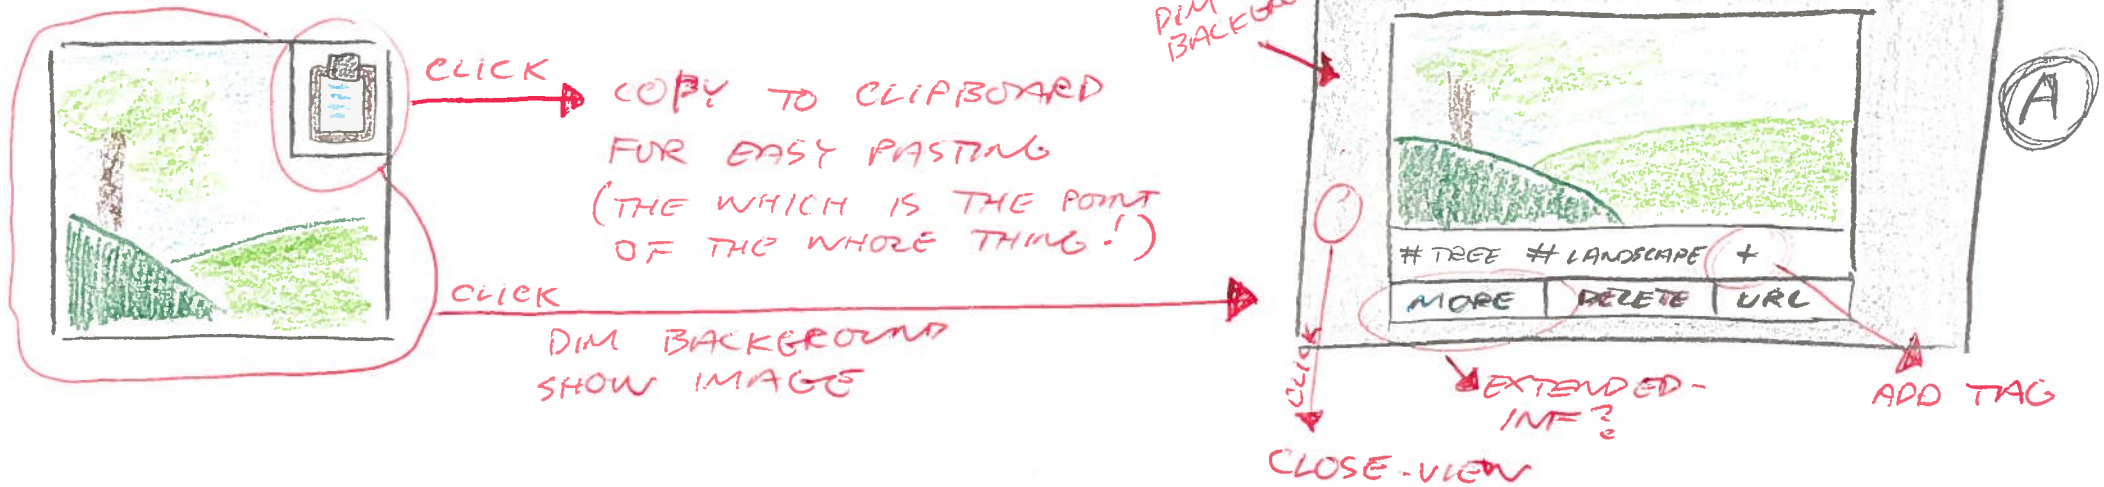 CLICK
COPY TO CLIPBOARD
FUR EASY PASTING
(THE WHICH IS THE POINT
OF THE WHOLE THING!)
CLICK
DIM BACKGROUND
SHOW IMAGE
DIM
# TREE # LANDSCAPE +
MORE DELETE URL
A
CLICK
CLOSE-VIEW
EXTENDED-
INF?
ADD TAG